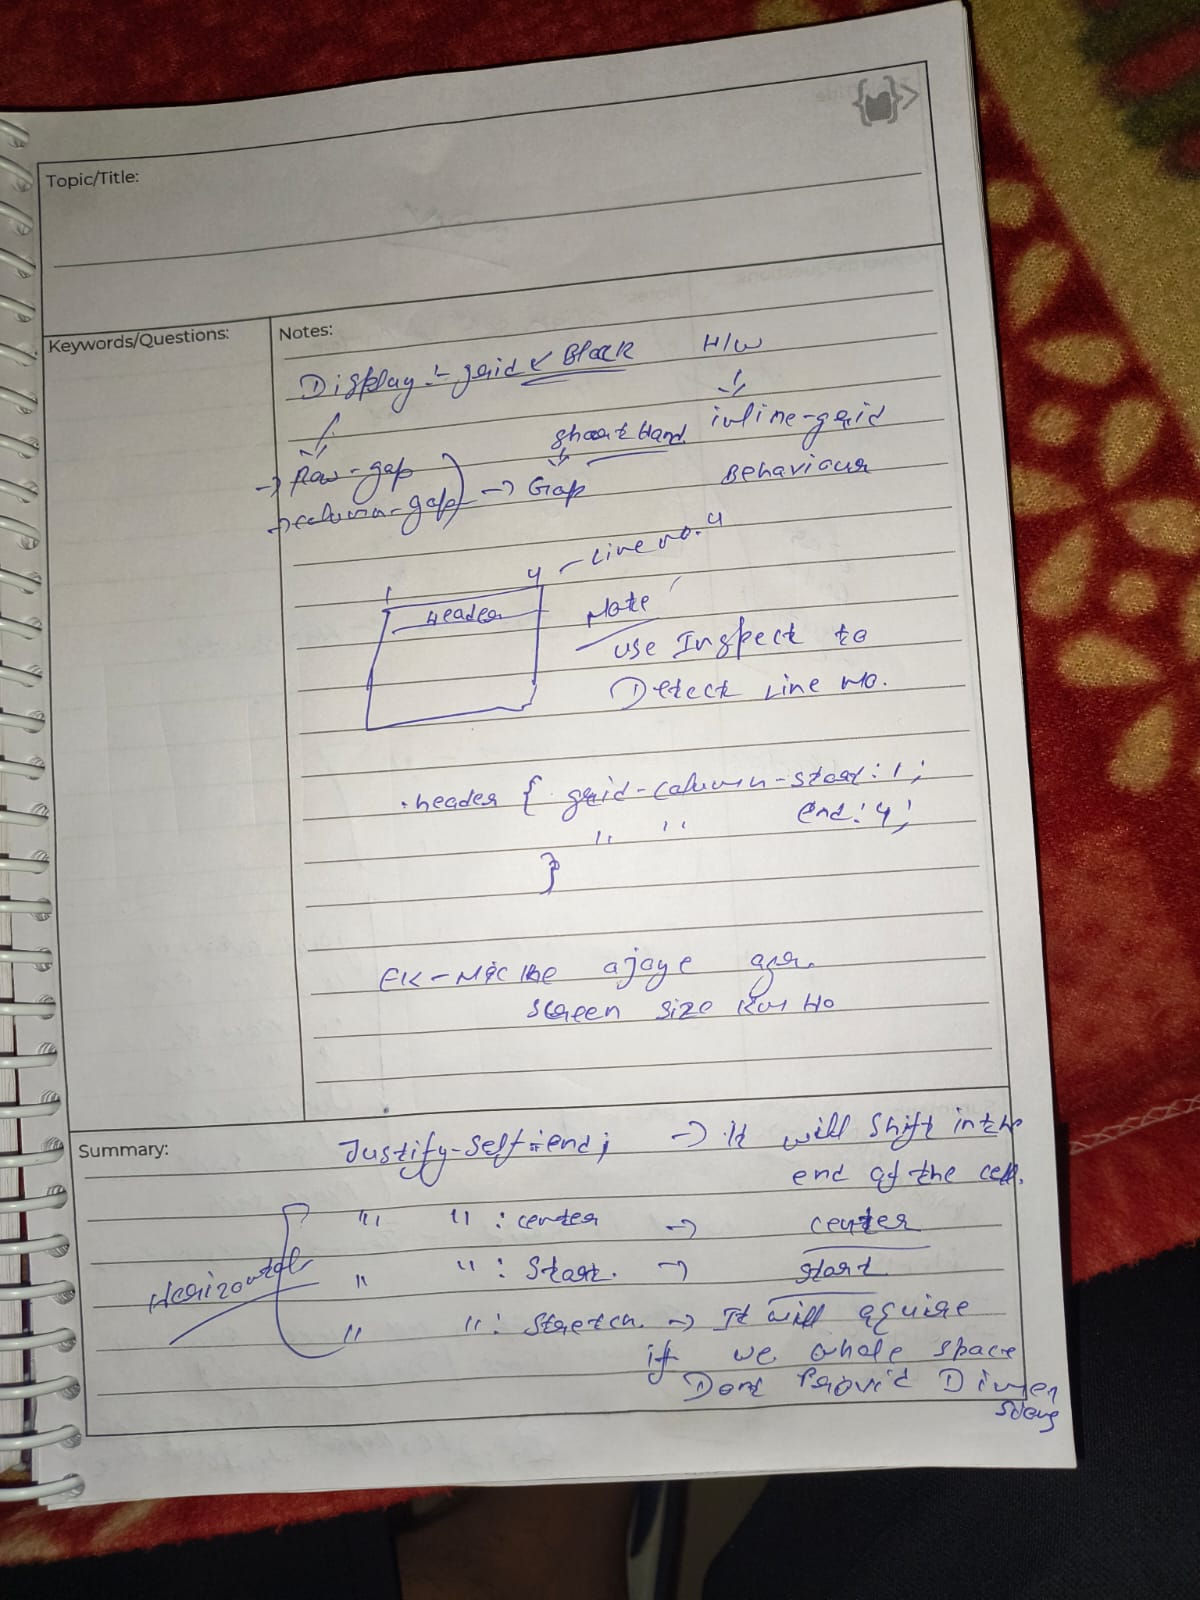 Topic/Title:
Keywords/Questions:
Notes:
Display :- grid Block H/W
short Hand inline-grid
→ Row-gap
→ column-gap → Gap Behaviour
1 4 - Line no. 4
Header Note
use Inspect to
Detect Line no.
.header { grid-column-start: 1;
" " end: 4;
}
ajaye agr.
screen size kum Ho
Summary:
Justify-self: end; → It will shift in the
end of the cell.
" " : center → center
Horizontal
" " : Start. → start
" " : Stretch. → It will aquire
if we whole space
Dont Provid Dimen